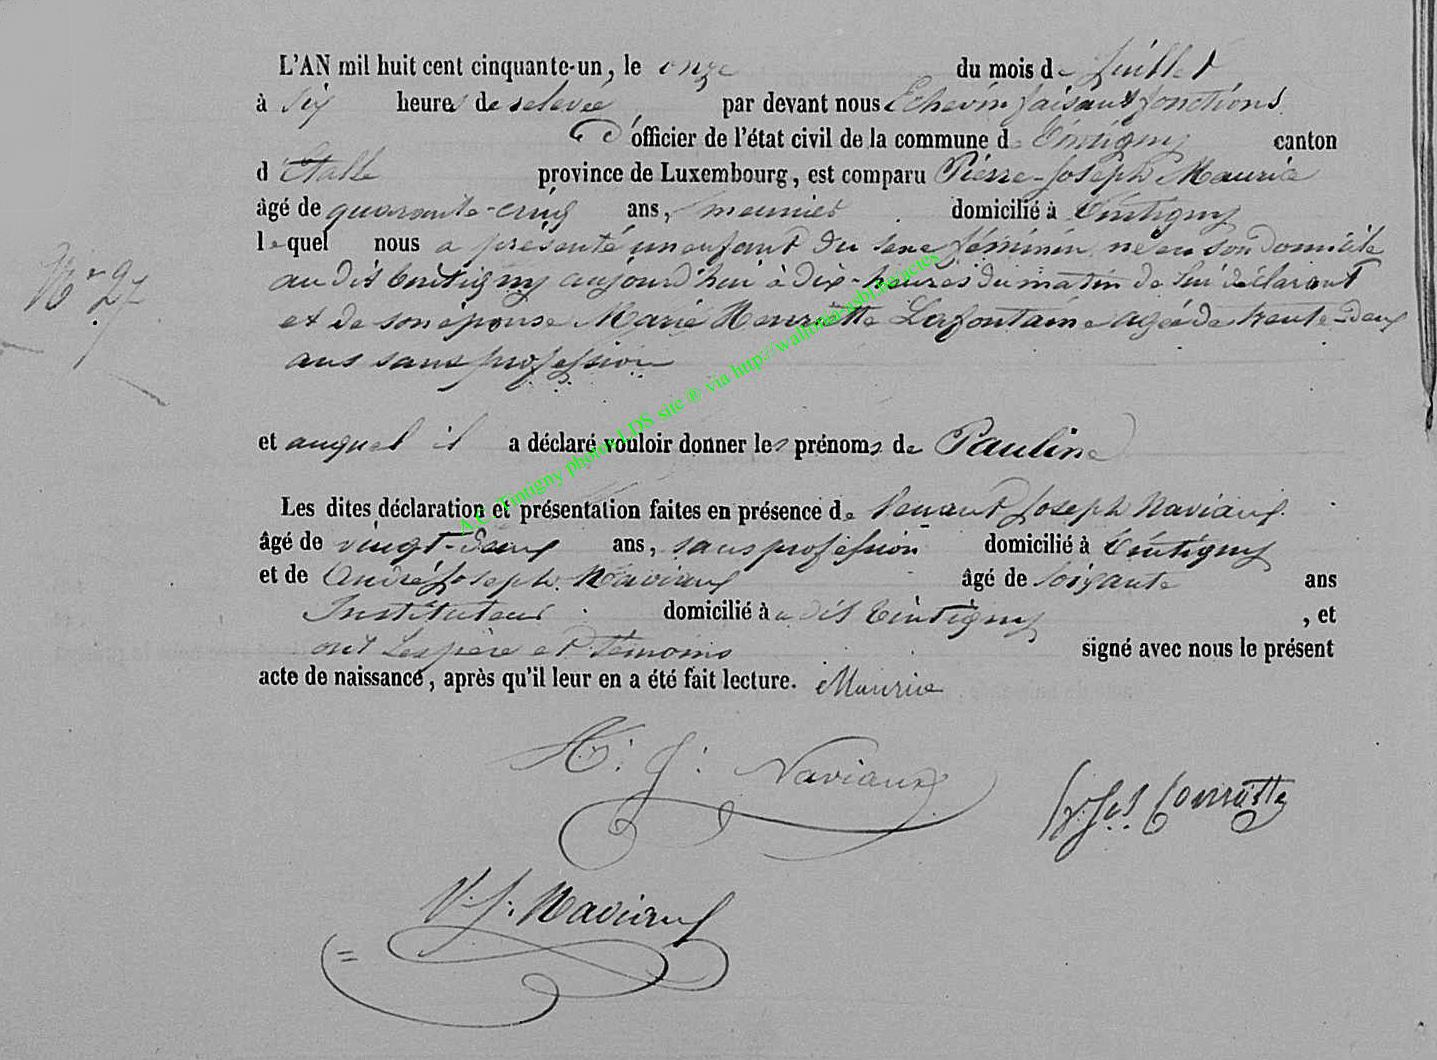 L'AN mil huit cent cinquante-un, le onze du mois de Juillet
à six heures de relevée par devant nous Echevin faisant fonctions
d'officier de l'état civil de la commune de Tintigny canton
d'Etalle province de Luxembourg, est comparu Pierre-Joseph Maurice
âgé de quarante-cinq ans, meunier domicilié à Tintigny
lequel nous a présenté un enfant du sexe féminin né en son domicile
au dit Tintigny aujourd'hui à dix heures du matin de lui déclarant
et de son épouse Marie Henriette Lafontaine agée de trente-deux
ans sans profession
N° 27
et auquel il a déclaré vouloir donner les prénoms de Pauline
Les dites déclaration et présentation faites en présence de Joseph Naviaux
âgé de vingt-deux ans, sans profession domicilié à Tintigny
et de André Joseph Naviaux âgé de soixante ans
Instituteur domicilié à dit Tintigny, et
ont les père et témoins signé avec nous le présent
acte de naissance, après qu'il leur en a été fait lecture. Maurice
J. Naviaux
V. J. Naviaux
A.E. Tintigny photos LDS site ® via http://wallonia-asbl.be/actes